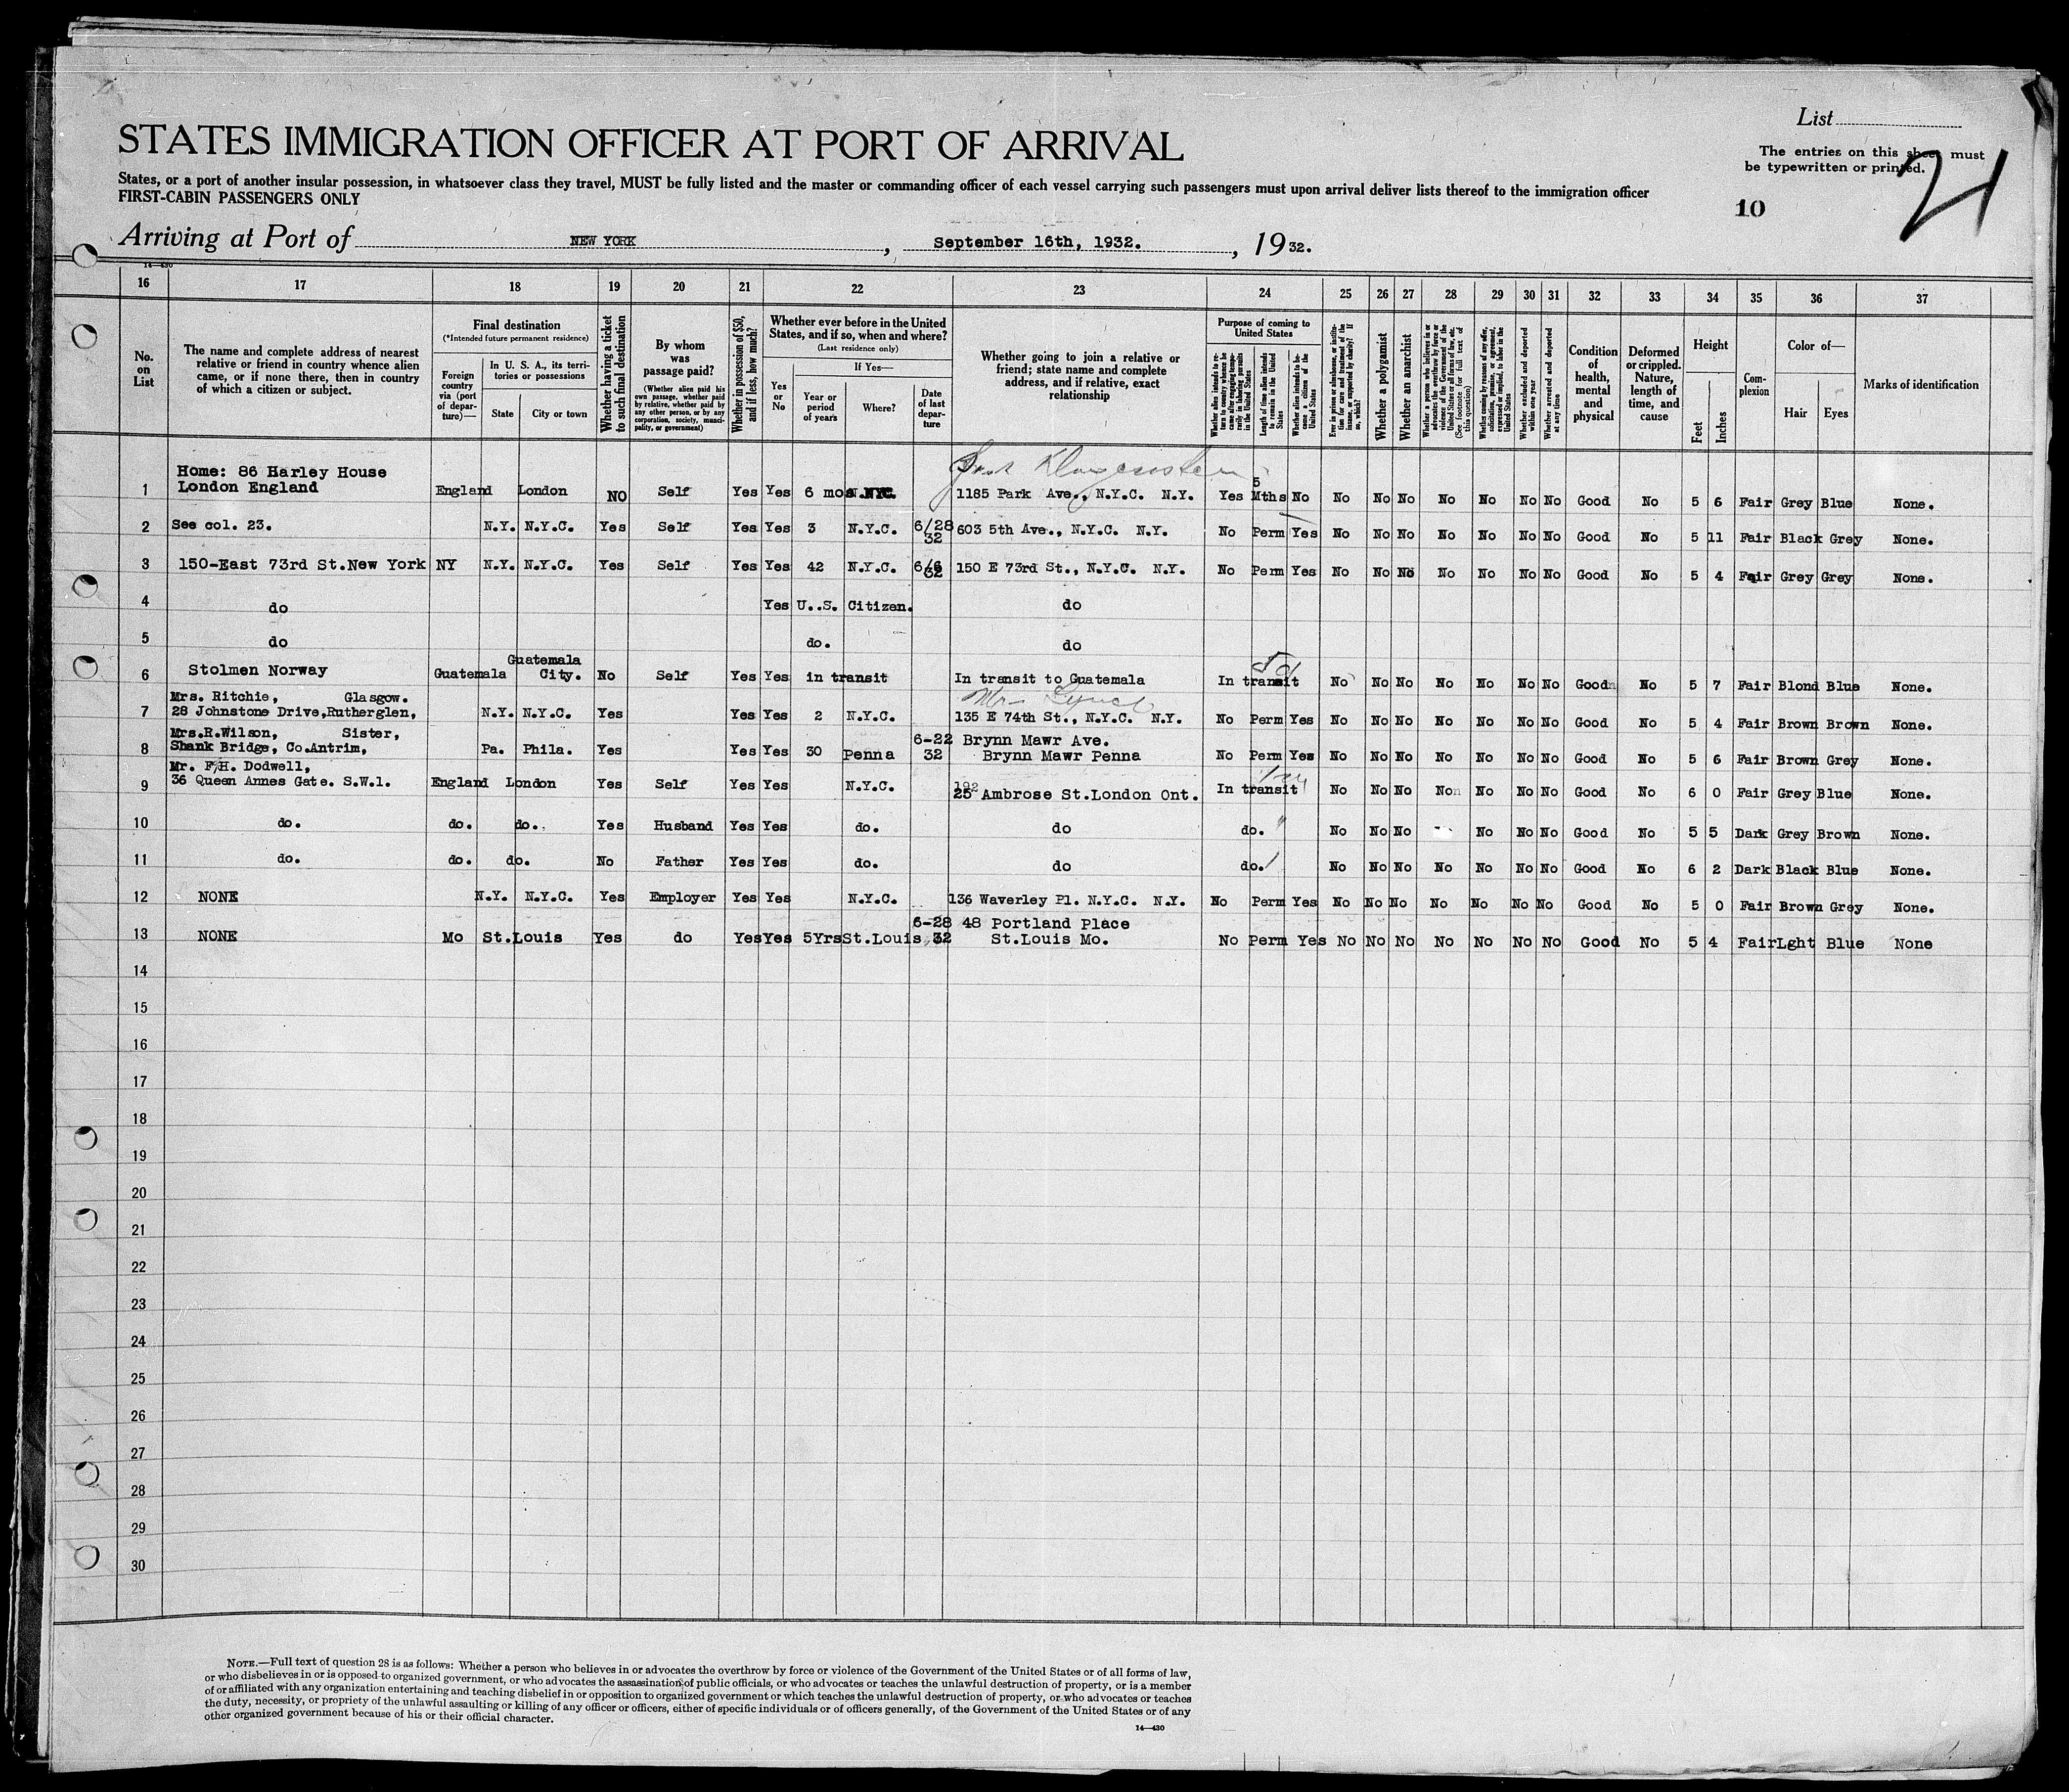 List
STATES IMMIGRATION OFFICER AT PORT OF ARRIVAL
The entries on this sheet must
be typewritten or printed.
21
States, or a port of another insular possession, in whatsoever class they travel, MUST be fully listed and the master or commanding officer of each vessel carrying such passengers must upon arrival deliver lists thereof to the immigration officer
FIRST-CABIN PASSENGERS ONLY
10
Arriving at Port of NEW YORK, September 16th, 1932., 1932.
14—430
16 17 18 19 20 21 22 23 24 25 26 27 28 29 30 31 32 33 34 35 36 37
No. on List
The name and complete address of nearest relative or friend in country whence alien came, or if none there, then in country of which a citizen or subject.
Final destination
(*Intended future permanent residence)
Foreign country via (port of departure)—
In U. S. A., its territories or possessions
State
City or town
Whether having a ticket to such final destination
By whom was passage paid?
(Whether alien paid his own passage, whether paid by relative, whether paid by any other person, or by any corporation, society, municipality, or government)
Whether in possession of $50, and if less, how much?
Whether ever before in the United States, and if so, when and where?
(Last residence only)
Yes or No
If Yes—
Year or period of years
Where?
Date of last departure
Whether going to join a relative or friend; state name and complete address, and if relative, exact relationship
Purpose of coming to United States
Whether alien intends to return to country whence he came after engaging temporarily in laboring pursuits in the United States
Length of time alien intends to remain in the United States
Whether alien intends to become a citizen of the United States
Ever in prison or almshouse, or institution for care and treatment of the insane, or supported by charity? If so, which?
Whether a polygamist
Whether an anarchist
Whether a person who believes in or advocates the overthrow by force or violence of the Government of the United States or all forms of law, etc. (See footnote for full text of this question)
Whether coming by reason of any offer, solicitation, promise, or agreement, expressed or implied, to labor in the United States
Whether excluded and deported within one year
Whether arrested and deported at any time
Condition of health, mental and physical
Deformed or crippled. Nature, length of time, and cause
Height
Feet
Inches
Complexion
Color of—
Hair
Eyes
Marks of identification
1 Home: 86 Harley House
London England England London NO Self Yes Yes 6 mos 1185 Park Ave., N.Y.C. N.Y. Yes 5 Mths No No No No No No No No Good No 5 6 Fair Grey Blue None.
2 See col. 23. N.Y. N.Y.C. Yes Self Yes Yes 3 N.Y.C. 6/28 32 603 5th Ave., N.Y.C. N.Y. No Perm Yes No No No No No No No Good No 5 11 Fair Black Grey None.
3 150-East 73rd St.New York NY N.Y. N.Y.C. Yes Self Yes Yes 42 N.Y.C. 6/6 32 150 E 73rd St., N.Y.C. N.Y. No Perm Yes No No No No No No No Good No 5 4 Fair Grey Grey None.
4 do Yes U..S. Citizen. do
5 do do. do
6 Stolmen Norway Guatemala Guatemala City. No Self Yes Yes in transit In transit to Guatemala In transit No No No No No No No Good No 5 7 Fair Blond Blue None.
Mr Lynch
7 Mrs. Ritchie, Glasgow.
28 Johnstone Drive,Rutherglen, N.Y. N.Y.C. Yes Yes Yes 2 N.Y.C. 135 E 74th St., N.Y.C. N.Y. No Perm Yes No No No No No No No Good No 5 4 Fair Brown Brown None.
8 Mrs.R.Wilson, Sister,
Shank Bridge, Co.Antrim, Pa. Phila. Yes Yes Yes 30 Penna 6-22 32 Brynn Mawr Ave.
Brynn Mawr Penna No Perm Yes No No No No No No No Good No 5 6 Fair Brown Grey None.
9 Mr. F.H. Dodwell,
36 Queen Annes Gate. S.W.1. England London Yes Self Yes Yes N.Y.C. Ambrose St.London Ont. In transit No No No No No No No Good No 6 0 Fair Grey Blue None.
10 do. do. do. Yes Husband Yes Yes do. do do. No No No No No No Good No 5 5 Dark Grey Brown None.
11 do. do. do. No Father Yes Yes do. do do. No No No No No No No Good No 6 2 Dark Black Blue None.
12 NONE N.Y. N.Y.C. Yes Employer Yes Yes N.Y.C. 136 Waverley Pl. N.Y.C. N.Y. No Perm Yes No No No No No No No Good No 5 0 Fair Brown Grey None.
13 NONE Mo St.Louis Yes do Yes Yes 5Yrs St.Louis 6-28 32 48 Portland Place
St.Louis Mo. No Perm Yes No No No No No No No Good No 5 4 Fair Lght Blue None
14
15
16
17
18
19
20
21
22
23
24
25
26
27
28
29
30
NOTE.—Full text of question 28 is as follows: Whether a person who believes in or advocates the overthrow by force or violence of the Government of the United States or of all forms of law,
or who disbelieves in or is opposed to organized government, or who advocates the assassination of public officials, or who advocates or teaches the unlawful destruction of property, or is a member
of or affiliated with any organization entertaining and teaching disbelief in or opposition to organized government or which teaches the unlawful destruction of property, or who advocates or teaches
the duty, necessity, or propriety of the unlawful assaulting or killing of any officer or officers, either of specific individuals or of officers generally, of the Government of the United States or of any
other organized government because of his or their official character.
14—430